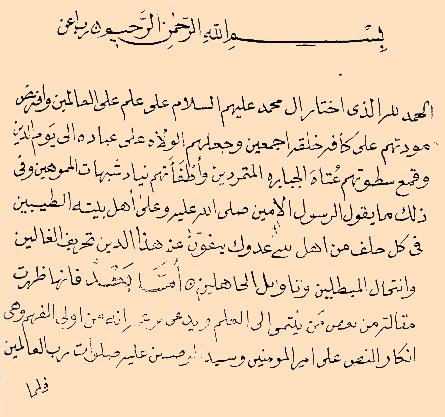 بسم الله الرحمن الرحيم رب اعن
الحمد لله الذى اختار ال محمد عليهم السلام على علم على العالمين وافترض
مودتهم على كافة خلقه اجمعين وجعلهم الولاه على عباده الى يوم الدين
وقمع بسطوتهم عتاة الجبابره المتمردين وأطفأ نار شبهات المموهين وفى
ذلك ما يقول الرسول الامين صلى الله عليه وعلى أهل بيته الطيبين
فى كل خلف من اهل بيتى عدول ينفون عن هذا الدين تحريف الغالين
وانتحال المبطلين وتاويل الجاهلين أما بعد فانها ظهرت
مقالة من بعض من ينتمى الى العلم ويدعى انه من اولى الفهم وهى
انكار النص على امير المومنين وسيد الوصيين عليه صلوات رب العالمين
فلما